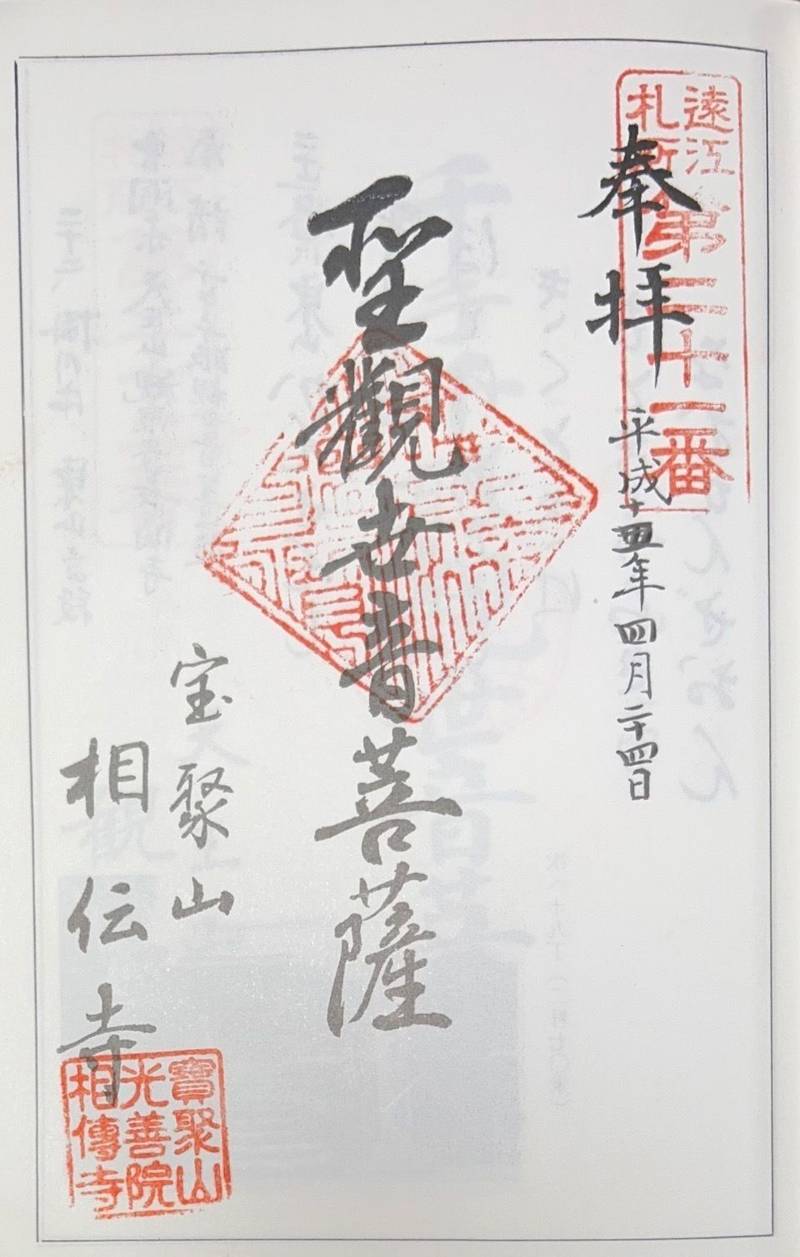 遠江
札所
第十番
奉拝
平成十五年四月二十四日
聖観世音菩薩
宝聚山
相伝寺
寶聚山
光善院
相傳寺